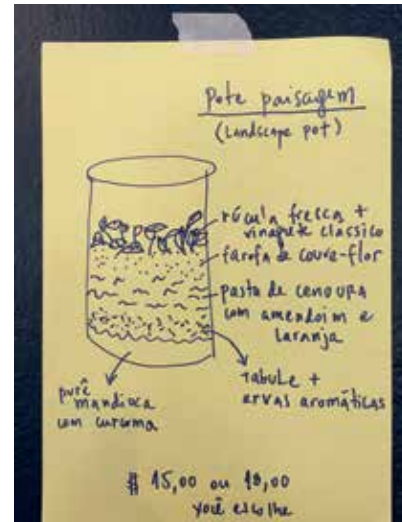 Pote paisagem
(Landscape pot)
rúcula fresca +
vinagrete clássico
farofa de couve-flor
pasta de cenoura
com amendoim e
laranja
tabule +
ervas aromáticas
purê
mandioca
com curcuma
$ 15,00 ou 18,00
você escolhe